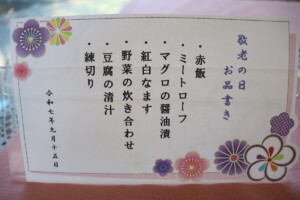 敬老の日
お品書き
・赤飯
・ミートローフ
・マグロの醤油漬
・紅白なます
・野菜の炊き合わせ
・豆腐の清汁
・練切り
令和七年九月十五日